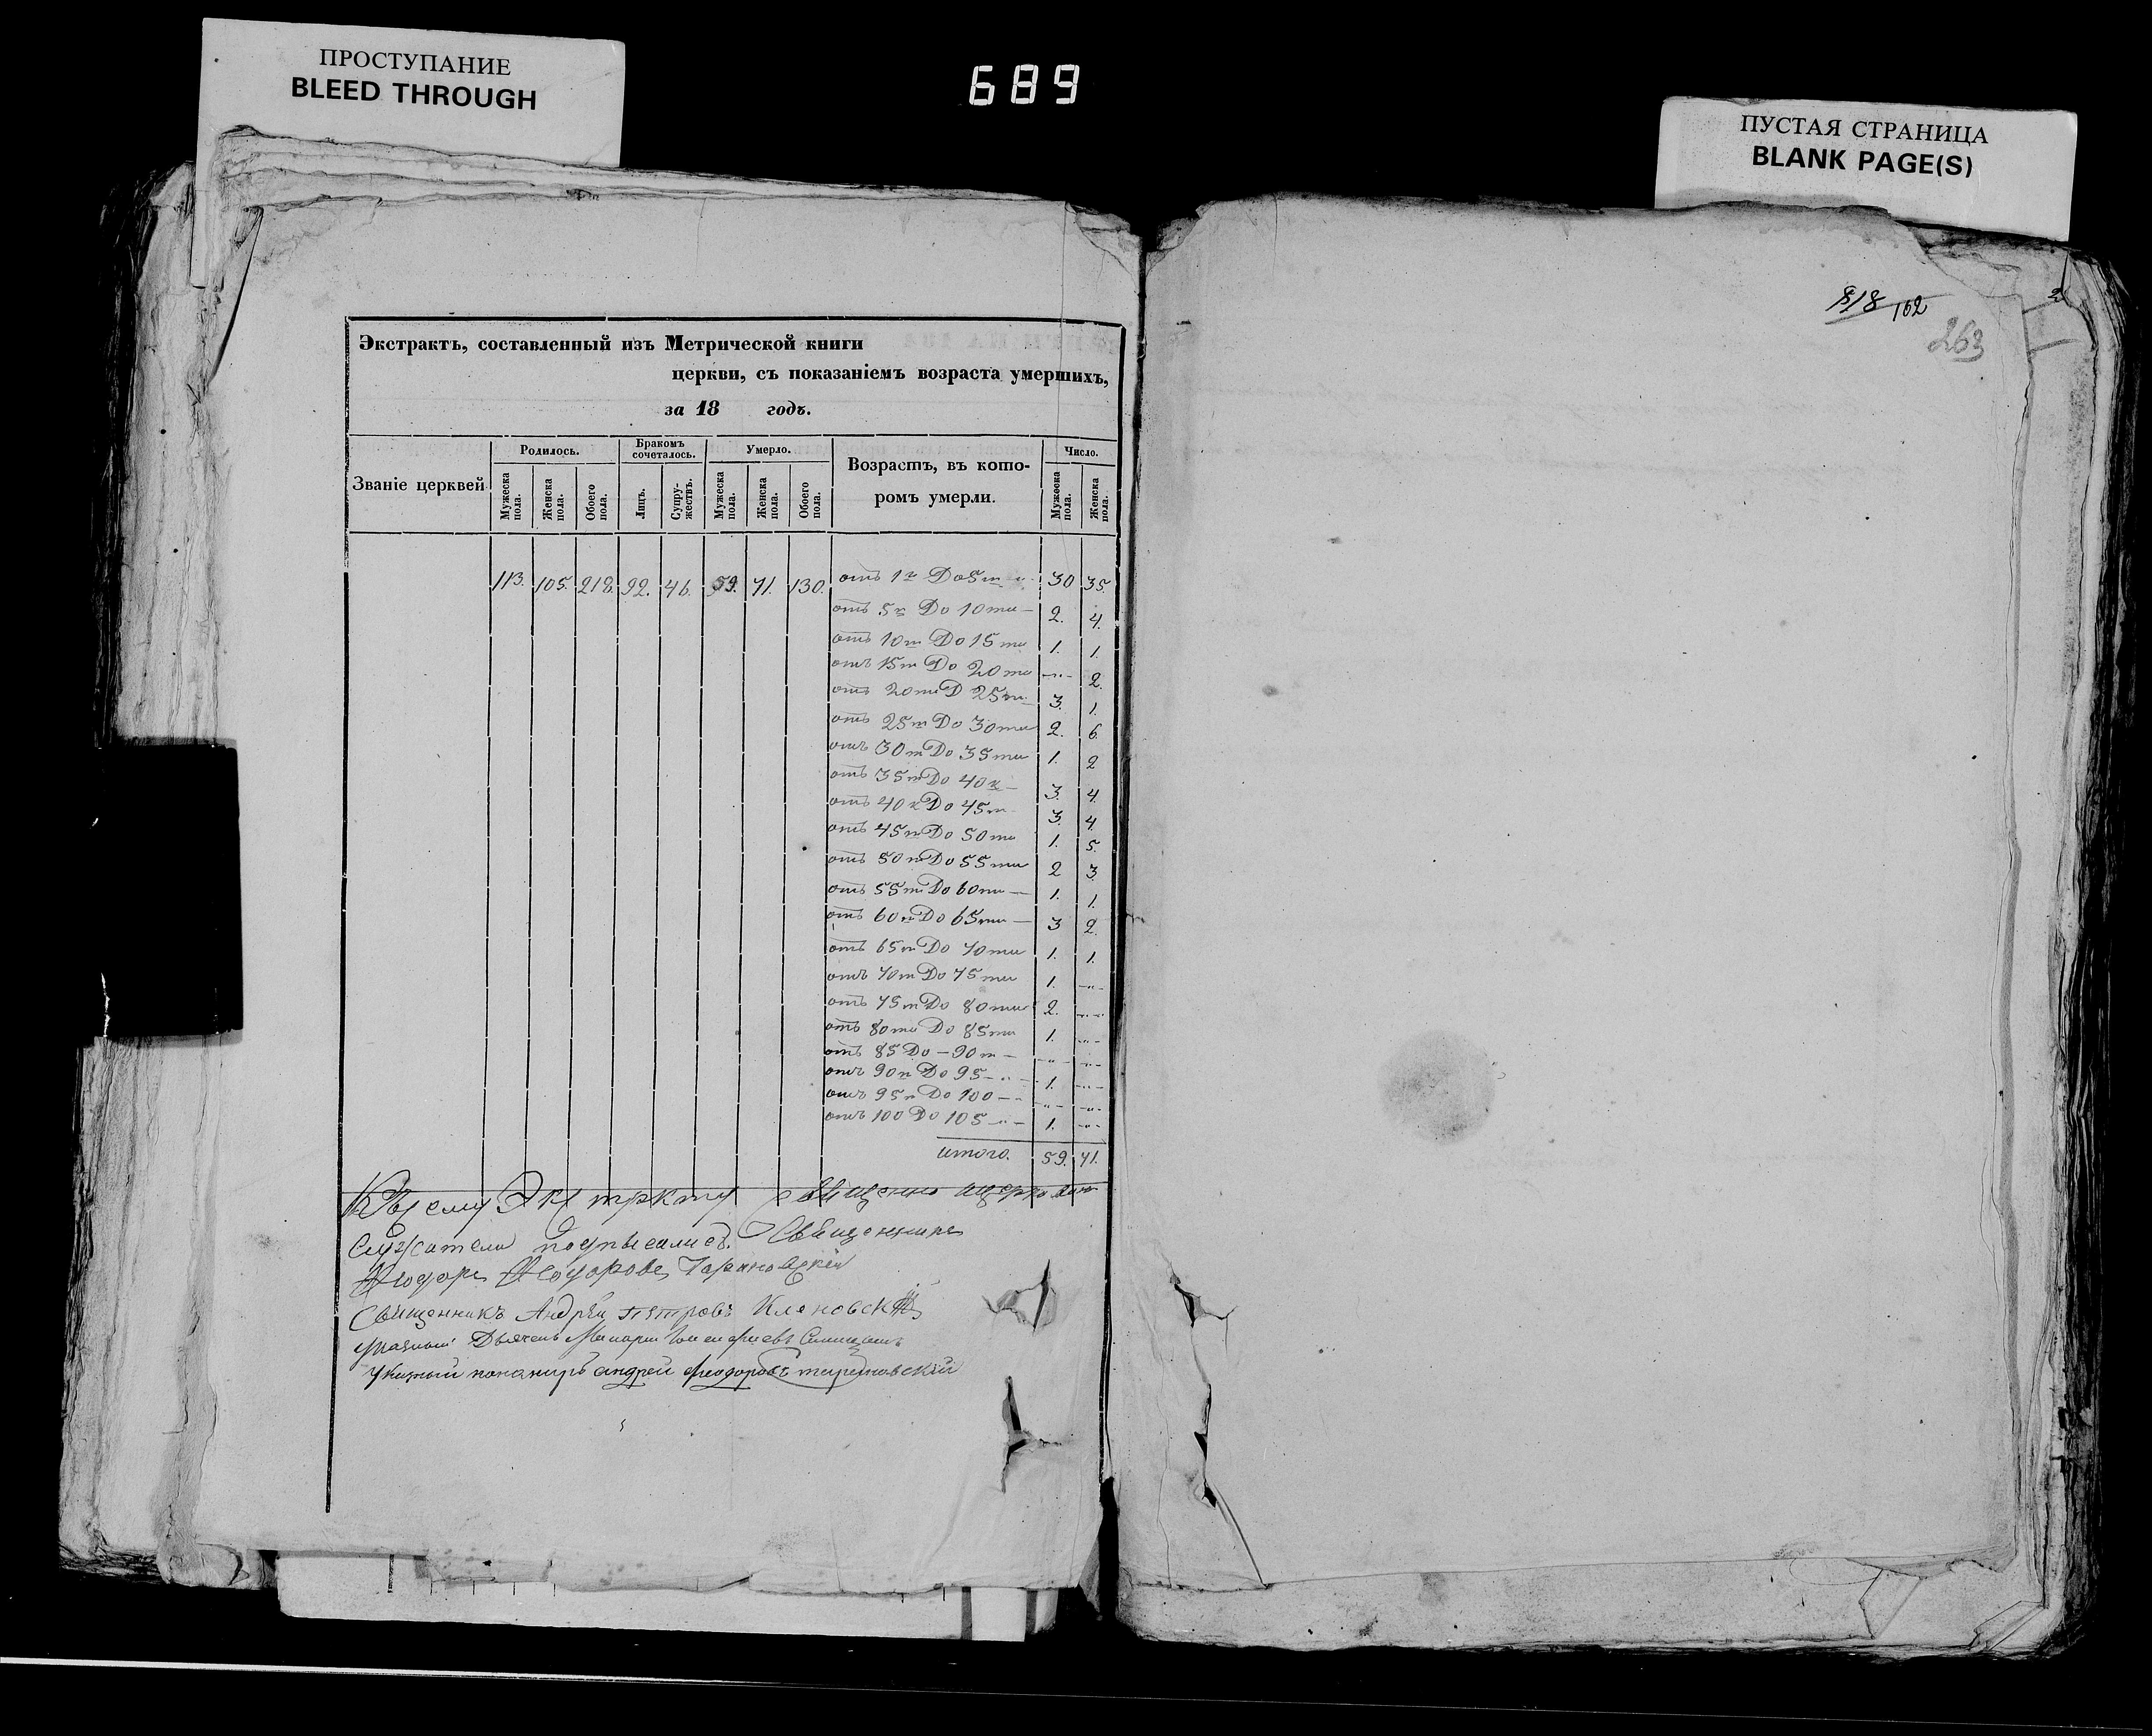 ПРОСТУПАНИЕ
BLEED THROUGH
689
ПУСТАЯ СТРАНИЦА
BLANK PAGE(S)
Экстрактъ, составленный изъ Метрической книги
церкви, съ показаніемъ возраста умершихъ,
за 18 годъ.
Званіе церквей
Родилось.
Бракомъ сочеталось.
Умерло.
Возрастъ, въ кото-
ромъ умерли.
Число.
Мужеска пола. Женска пола. Обоего пола. Лицъ. Супру-жествъ. Мужеска пола. Женска пола. Обоего пола. Мужеска пола. Женска пола.
113. 105. 218. 92. 46. 59. 71. 130. отъ 1го До 5ти 30 35.
отъ 5ти До 10ти — 2. 4.
отъ 10ти До 15ти 1. 1.
отъ 15ти До 20ти -"- 2.
отъ 20ти Д 25ти 3. 1.
отъ 25ти До 30ти 2. 6.
отъ 30ти До 35ти 1. 2
отъ 35ти До 40к — 3. 4.
отъ 40к До 45ти 3. 4.
отъ 45ти До 50ти 1. 5.
отъ 50ти До 55ти 2 3.
отъ 55ти До 60ти — 1. 1.
отъ 60ти До 65ти — 3 2.
отъ 65ти До 70ти 1. 1.
отъ 70ти До 75ти 1. -"-
отъ 75ти До 80ти 2. -"-
отъ 80ти До 85ти 1. -"-
отъ 85 До — 90ти — -"- -"-
отъ 90ти До 95 -"- 1. -"-
отъ 95ти До 100 — -"- -"-
отъ 100 До 105 -"- 1. -"-
итого. 59. 71.
К сему священно
служители подписались. Священникъ
Феодоръ Феодоровъ Тарановскій
Священникъ Андрей Петровъ Клановскій
Указный Дьячекъ
Указный понамарь андрей феодоровъ тарановский
818 102
263